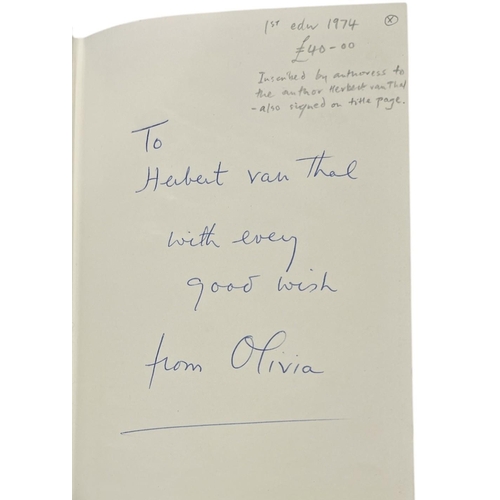 1st edn 1974
£40-00
Inscribed by authoress to
the author Herbert van Thal
- also signed on title page.
X
To
Herbert van Thal
with every
good wish
from Olivia